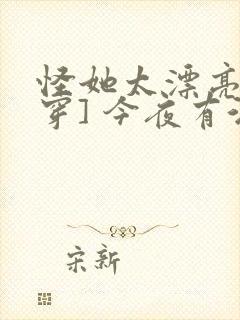 怪她太漂亮
穿] 今夜有
宋新